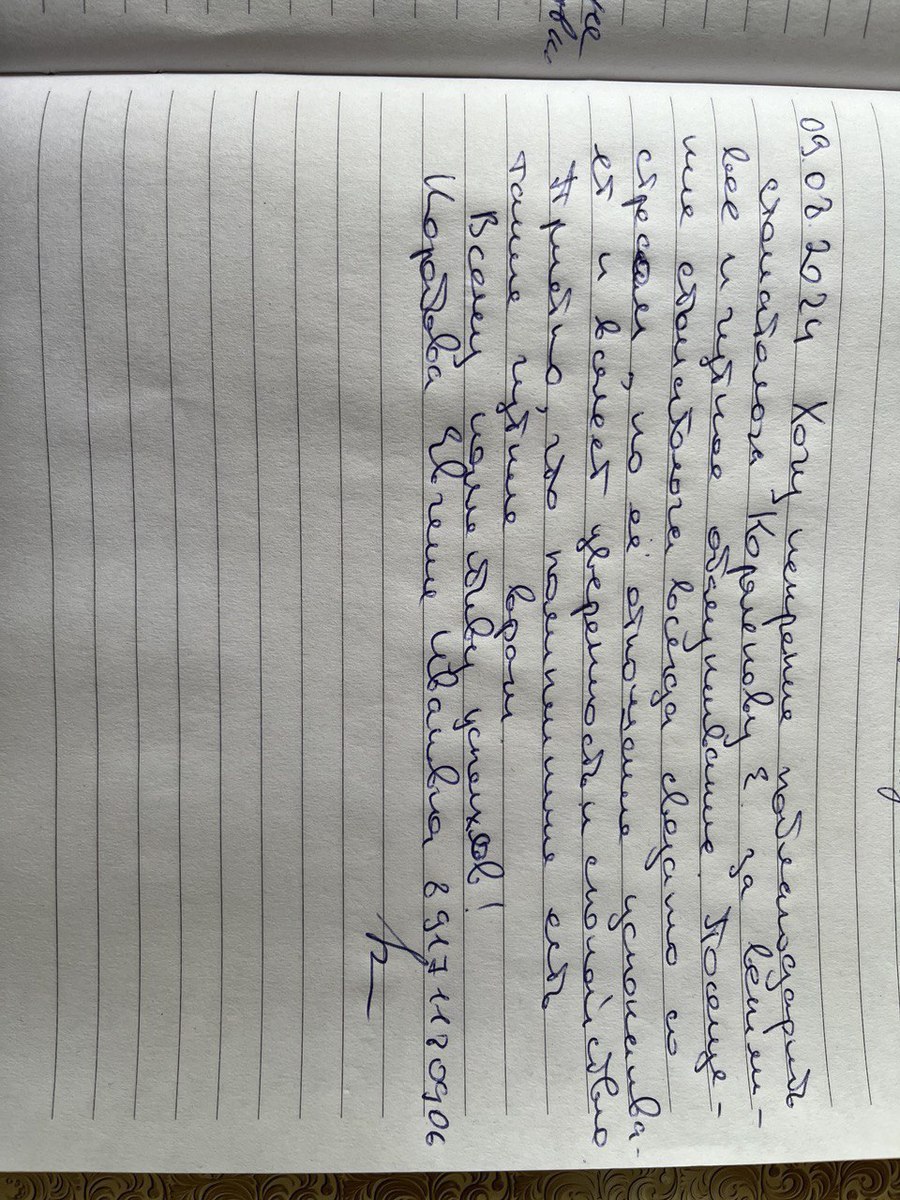 09.08.2024 Хочу искренне поблагодарить
стоматолога Короленову Е за вежли-
вое и чуткое обслуживание. Посеще-
ние стоматолога всегда связано со
стрессом, но её отношение успокаива-
ет и вселяет уверенность и спокойствие
Приятно, что в поликлинике есть
такие чуткие врачи.
Всему коллективу успехов!
Коробова Евгения Ивановна 8 917 118 09 06